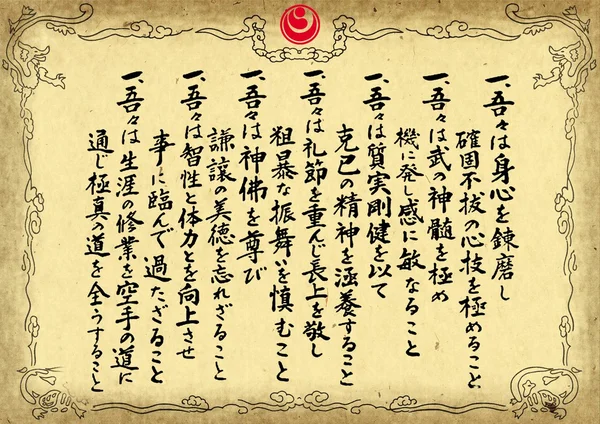 一、吾々は身心を錬磨し
確固不抜の心技を極めること
一、吾々は武の神髄を極め
機に発し感に敏なること
一、吾々は質実剛健を以て
克己の精神を涵養すること
一、吾々は礼節を重んじ長上を敬し
粗暴な振舞いを慎むこと
一、吾々は神佛を尊び
謙譲の美徳を忘れざること
一、吾々は智性と体力とを向上させ
事に臨んで過たざること
一、吾々は生涯の修業を空手の道に
通じ極真の道を全うすること